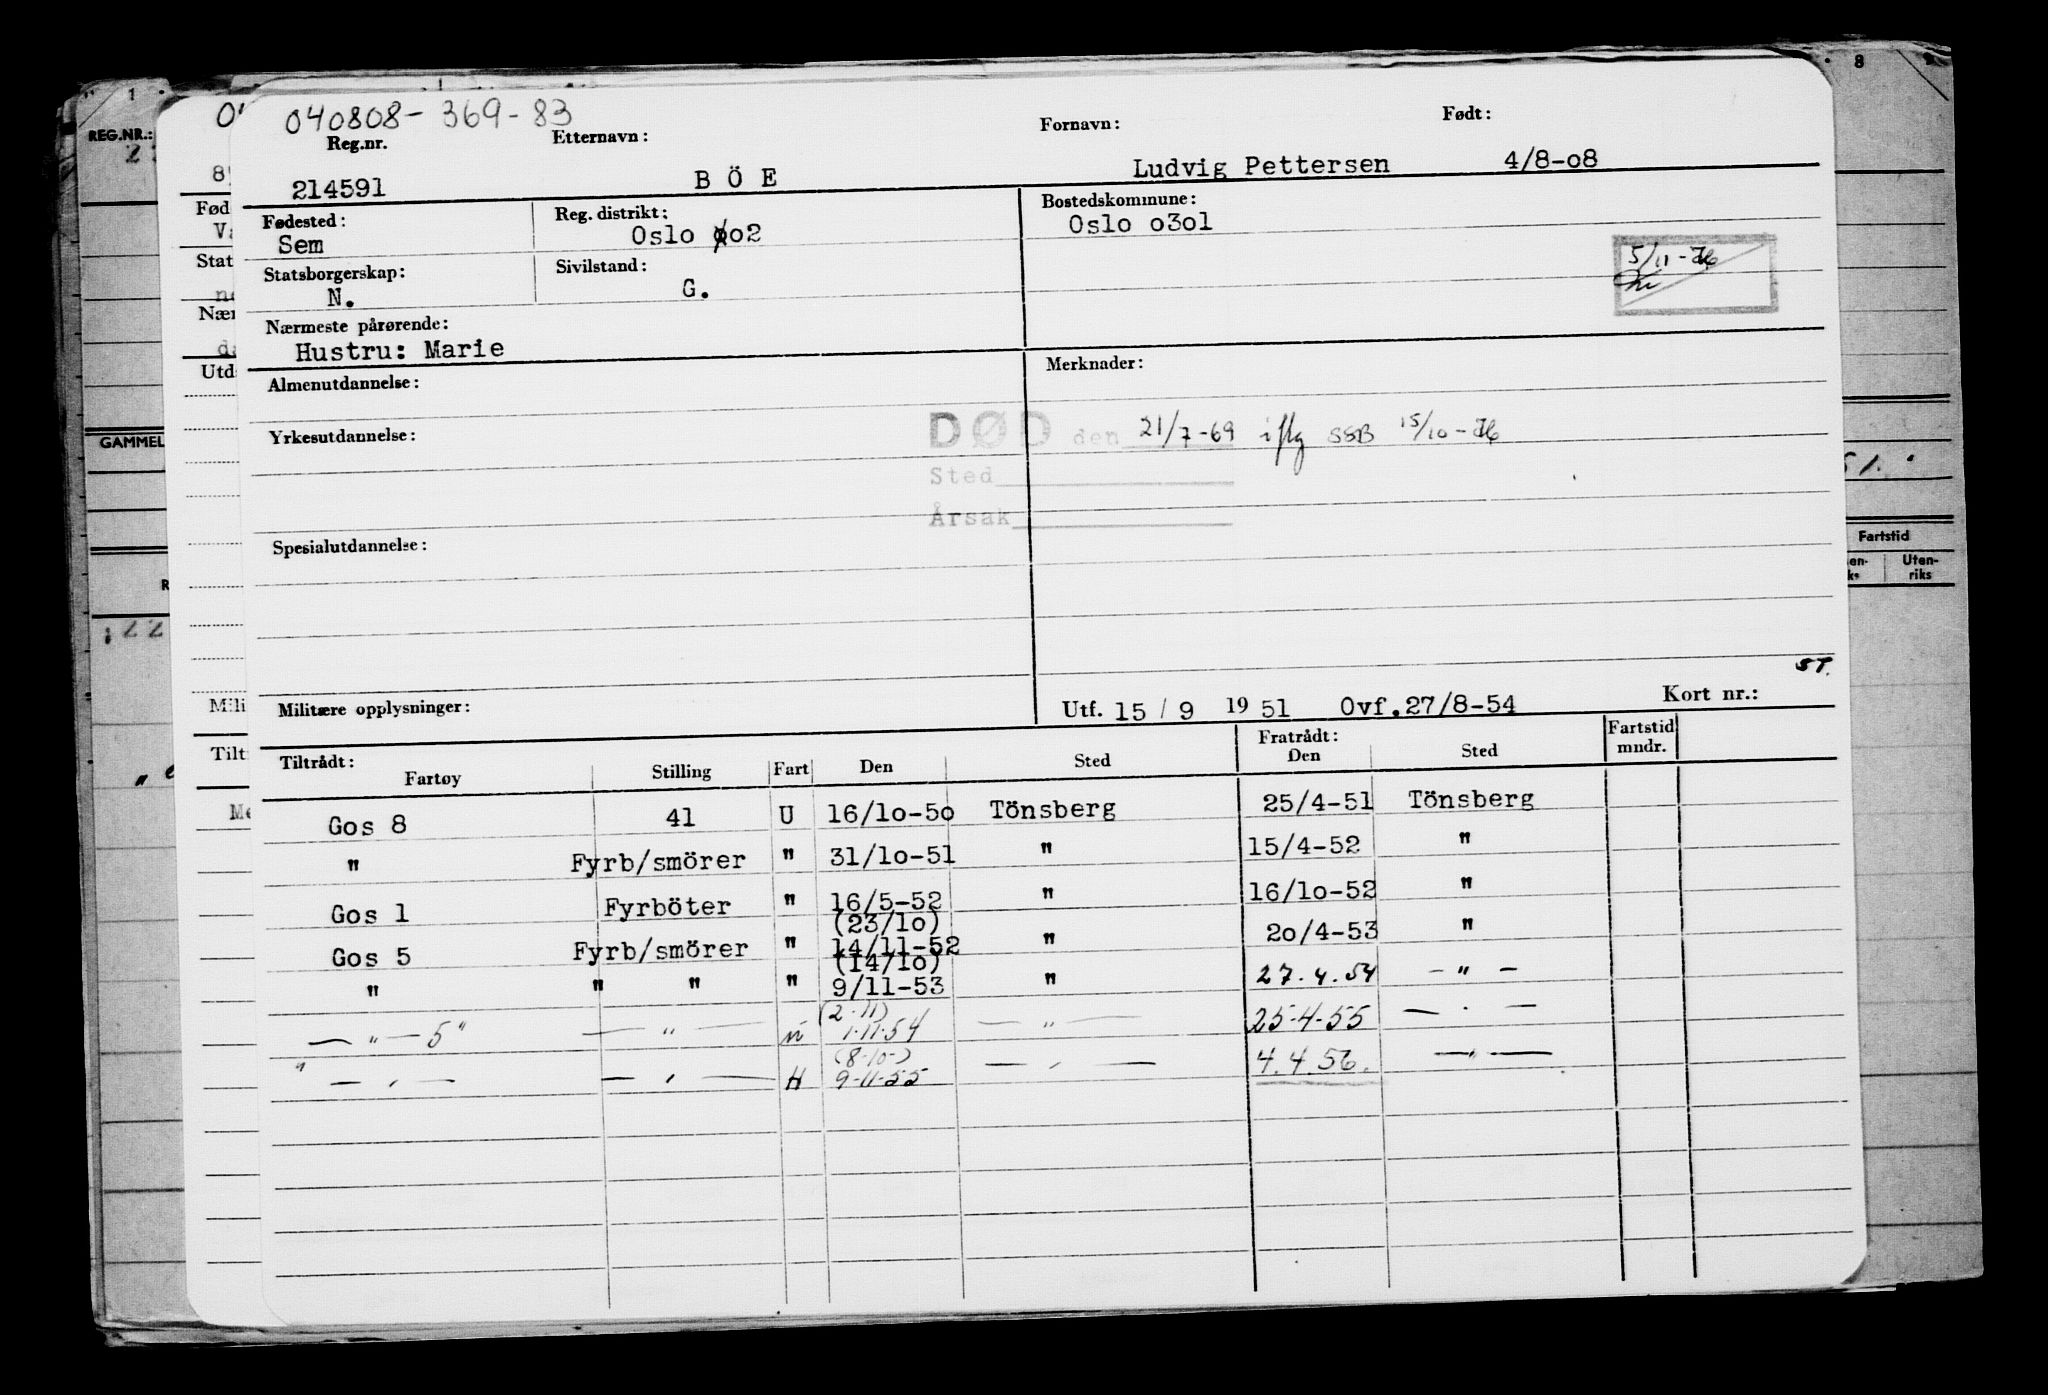 040808-369-83
Reg.nr. Etternavn: Fornavn: Født:
214591 B Ö E Ludvig Pettersen 4/8-o8
Fødested: Reg. distrikt: Bostedskommune:
Sem Oslo o2 Oslo o3o1
Statsborgerskap: Sivilstand:
N. G.
5/11-76
Nærmeste pårørende:
Hustru: Marie
Almenutdannelse: Merknader:
Yrkesutdannelse: DØD den 21/7-69 iflg SSB 15/10-76
Sted
Årsak
Spesialutdannelse:
ST.
Militære opplysninger: Utf. 15 / 9 19 51 Ovf.27/8-54 Kort nr.:
Tiltrådt: Fratrådt: Fartstid
Fartøy Stilling Fart Den Sted Den Sted mndr.
Gos 8 41 U 16/lo-5o Tönsberg 25/4-51 Tönsberg
" Fyrb/smörer " 31/lo-51 " 15/4-52 "
Gos l Fyrböter " 16/5-52 " 16/lo-52 "
(23/lo)
Gos 5 Fyrb/smörer " 14/11-52 " 2o/4-53 "
(14/lo)
" " " " 9/11-53 " 27.4.54 - " -
(2-11)
— " — 5" — " — " 1-11-54 — " — 25-4-55 — " —
(8-10-)
" — " — — " — H 9-11-55 — " — 4.4.56. — " —
REG.NR.:
GAMMEL
Fartstid
Uten-
riks